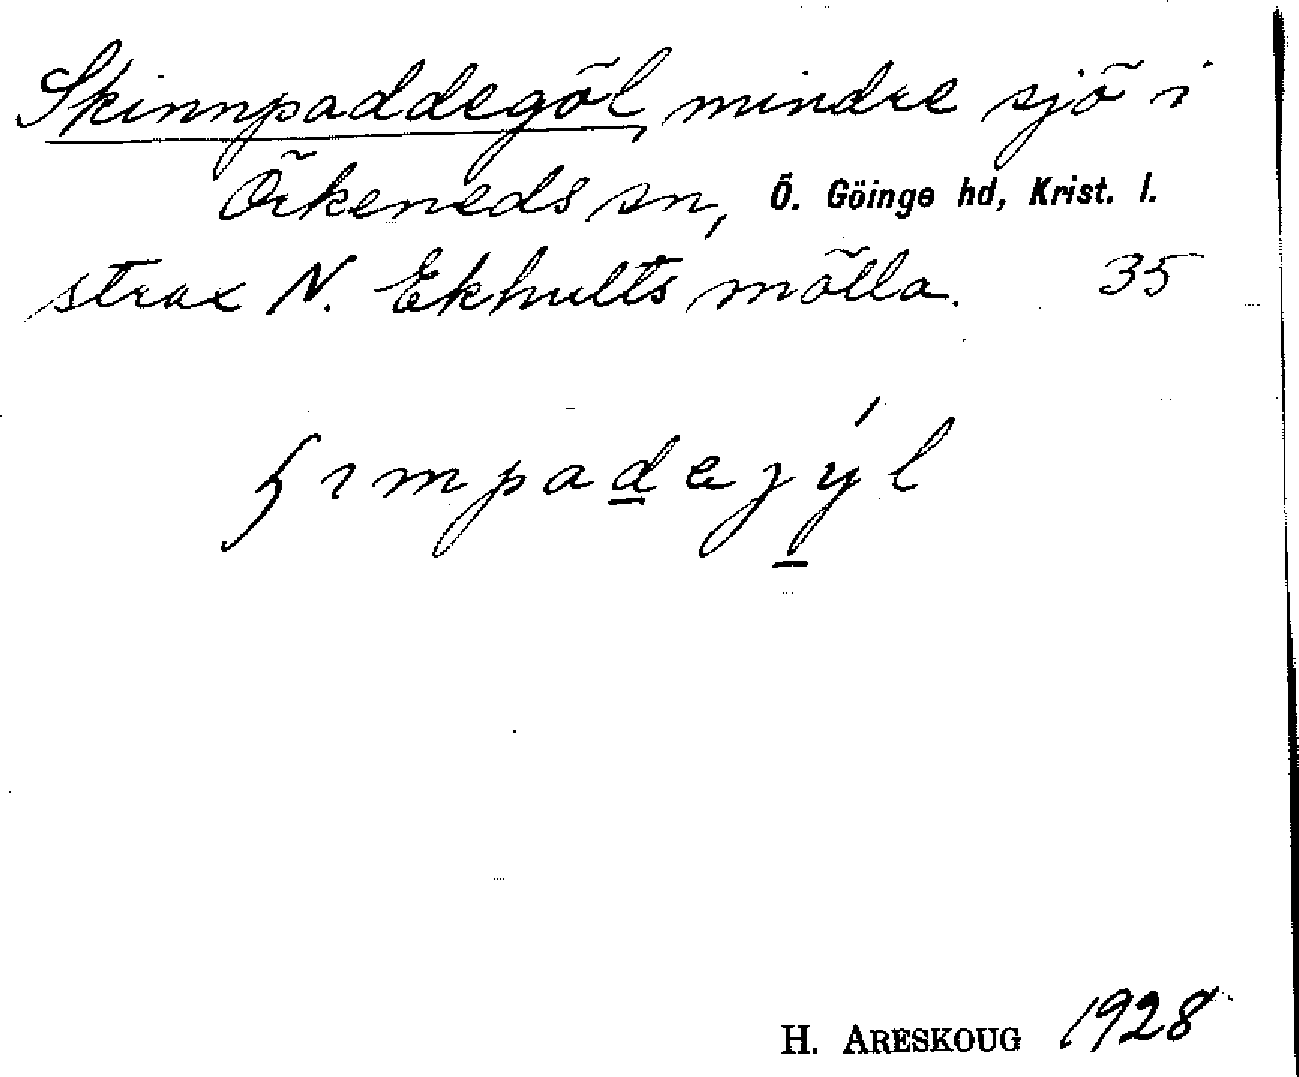 Skinnpaddegöl, mindre sjö i
Örkeneds sn, Ö. Göinge hd, Krist. l.
strax N. Ekhults mölla. 35
H. ARESKOUG 1928